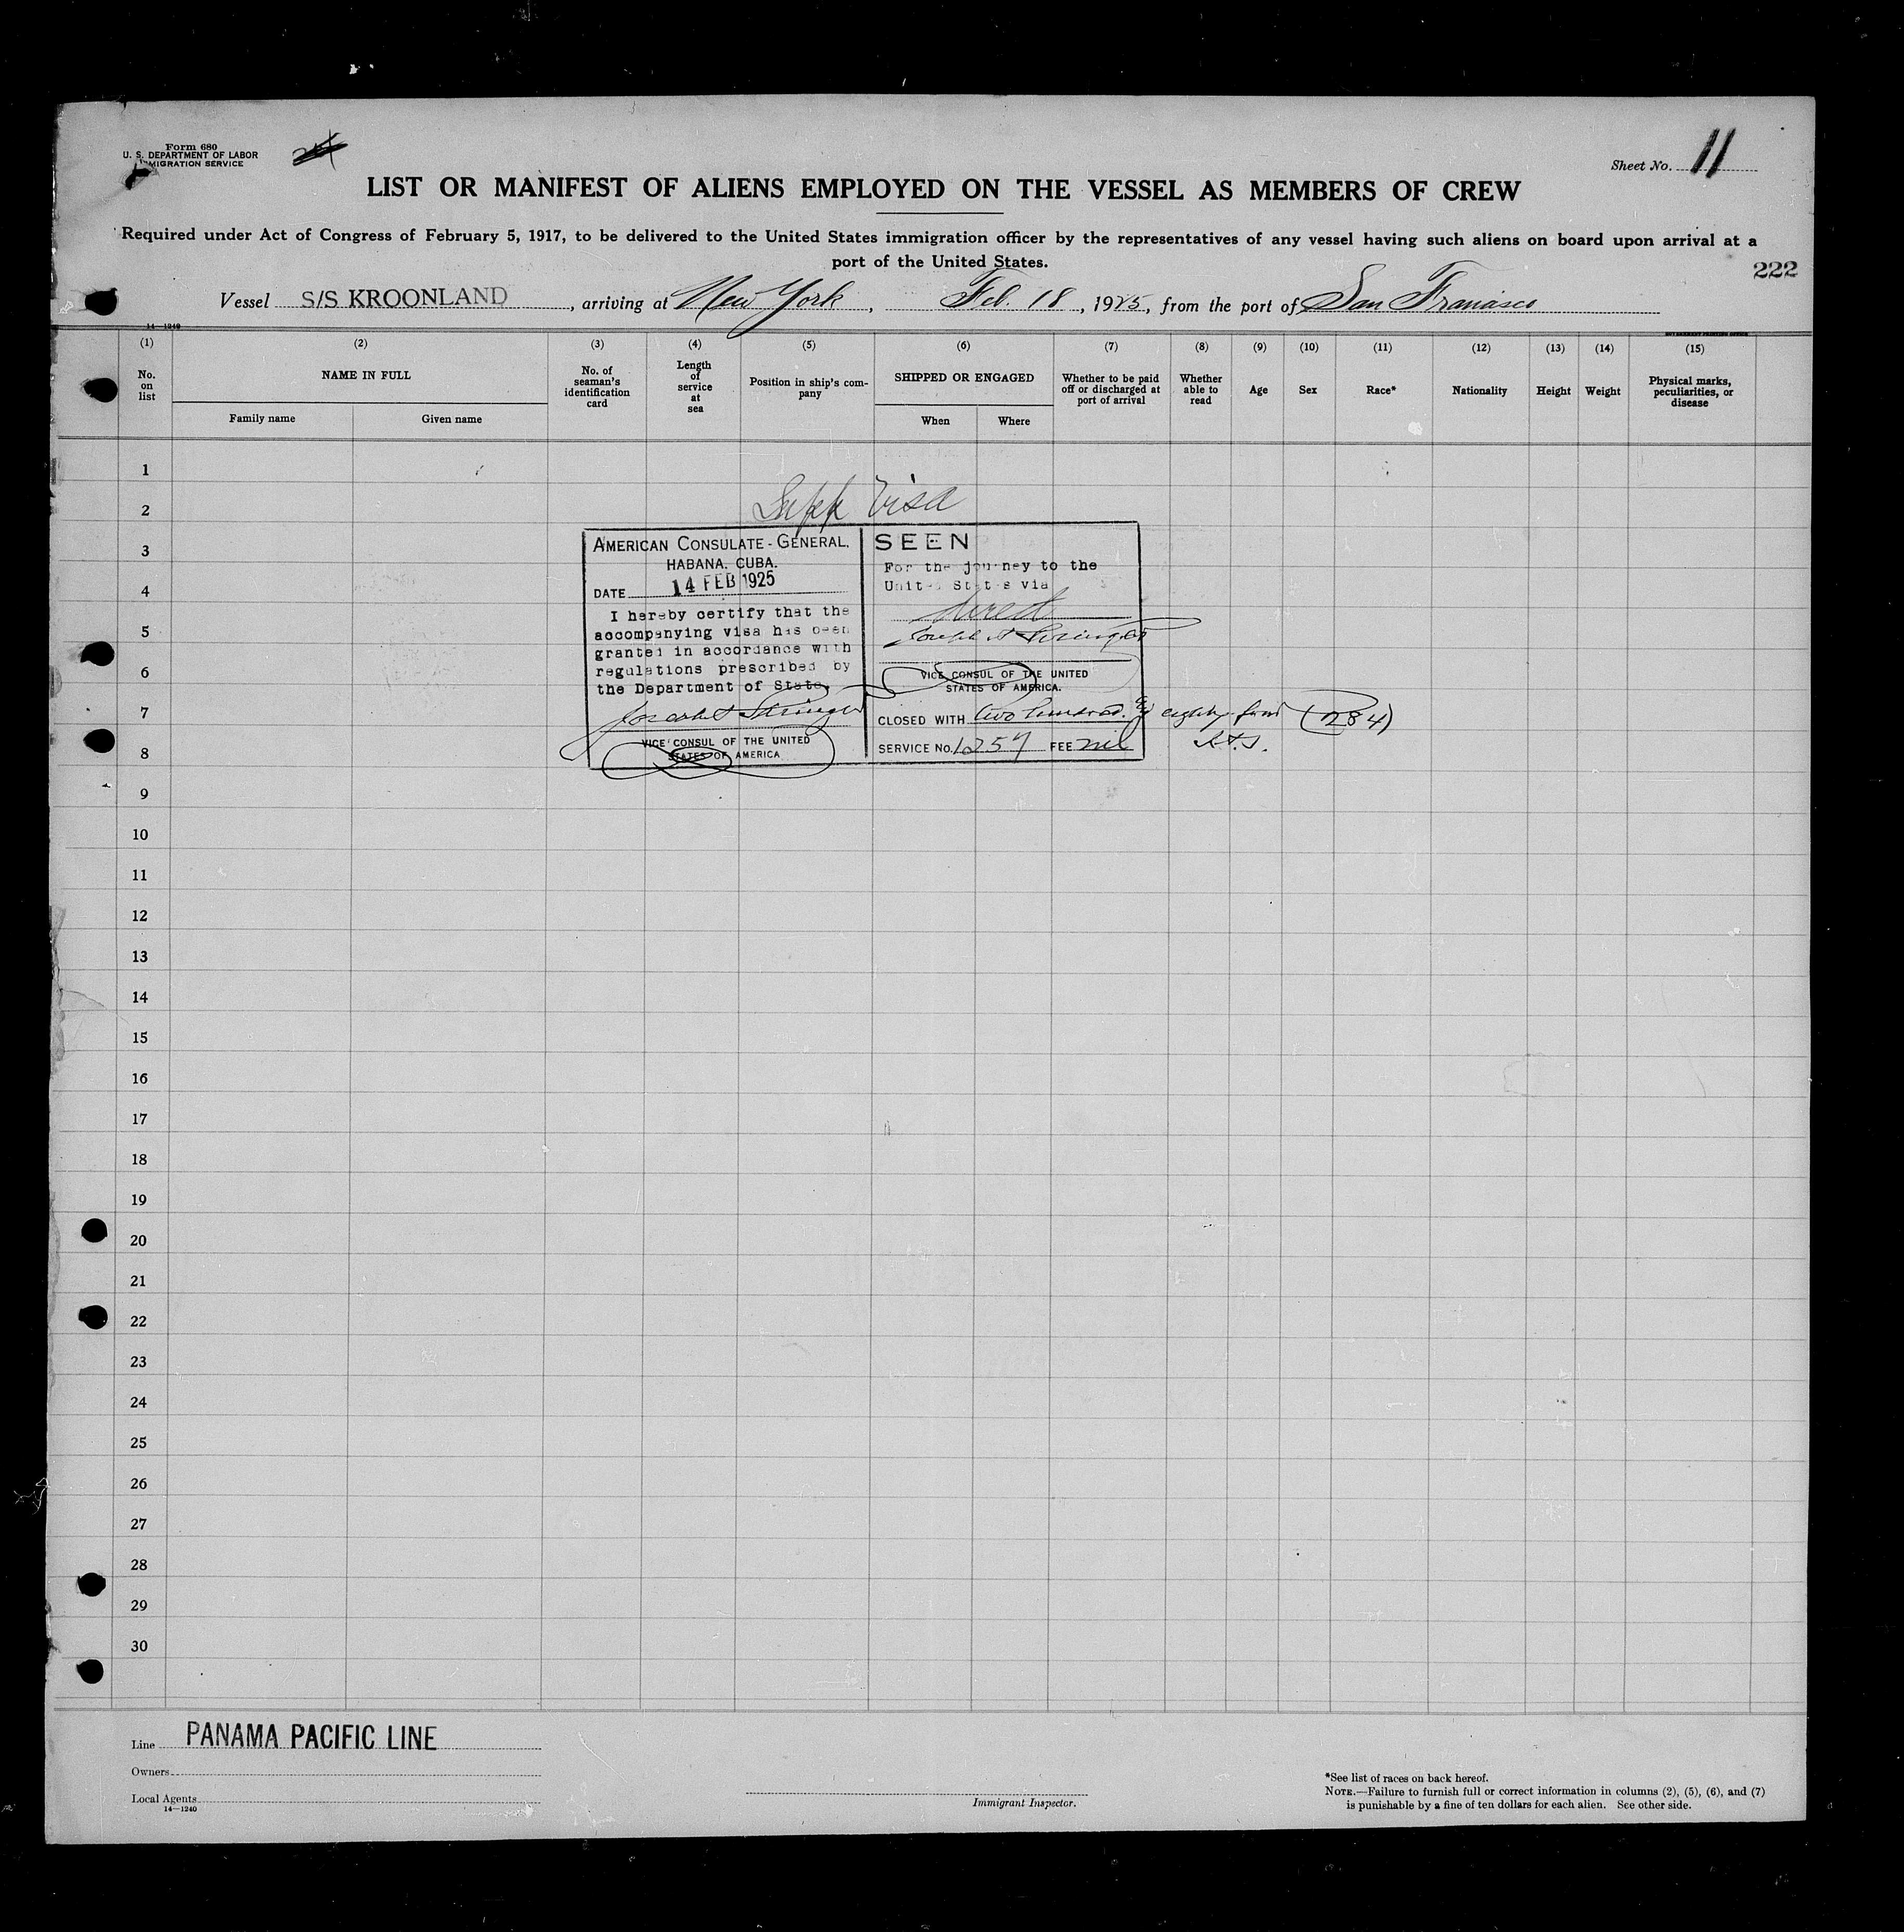 Form 680
U. S. DEPARTMENT OF LABOR
IMMIGRATION SERVICE
Sheet No. 11
LIST OR MANIFEST OF ALIENS EMPLOYED ON THE VESSEL AS MEMBERS OF CREW
Required under Act of Congress of February 5, 1917, to be delivered to the United States immigration officer by the representatives of any vessel having such aliens on board upon arrival at a
port of the United States.
222
Vessel S/S KROONLAND, arriving at New York, Feb. 18, 1925, from the port of San Francisco
14—1240
GOVERNMENT PRINTING OFFICE
(1) (2) (3) (4) (5) (6) (7) (8) (9) (10) (11) (12) (13) (14) (15)
No. on list
NAME IN FULL
Family name
Given name
No. of seaman's identification card
Length of service at sea
Position in ship's company
SHIPPED OR ENGAGED
When
Where
Whether to be paid off or discharged at port of arrival
Whether able to read
Age
Sex
Race*
Nationality
Height
Weight
Physical marks, peculiarities, or disease
1
2
3
4
5
6
7
8
9
10
11
12
13
14
15
16
17
18
19
20
21
22
23
24
25
26
27
28
29
30
Supp Visa
AMERICAN CONSULATE-GENERAL.
HABANA. CUBA.
DATE 14 FEB 1925
I hereby certify that the
accompanying visa has been
granted in accordance with
regulations prescribed by
the Department of State.
VICE CONSUL OF THE UNITED
STATES OF AMERICA
SEEN
For the journey to the
United States via
direct
VICE CONSUL OF THE UNITED
STATES OF AMERICA.
CLOSED WITH two hundred & eighty four (284)
SERVICE NO. 1257 FEE nil
Line PANAMA PACIFIC LINE
Owners
Local Agents
14—1240
Immigrant Inspector.
*See list of races on back hereof.
NOTE.—Failure to furnish full or correct information in columns (2), (5), (6), and (7)
is punishable by a fine of ten dollars for each alien. See other side.